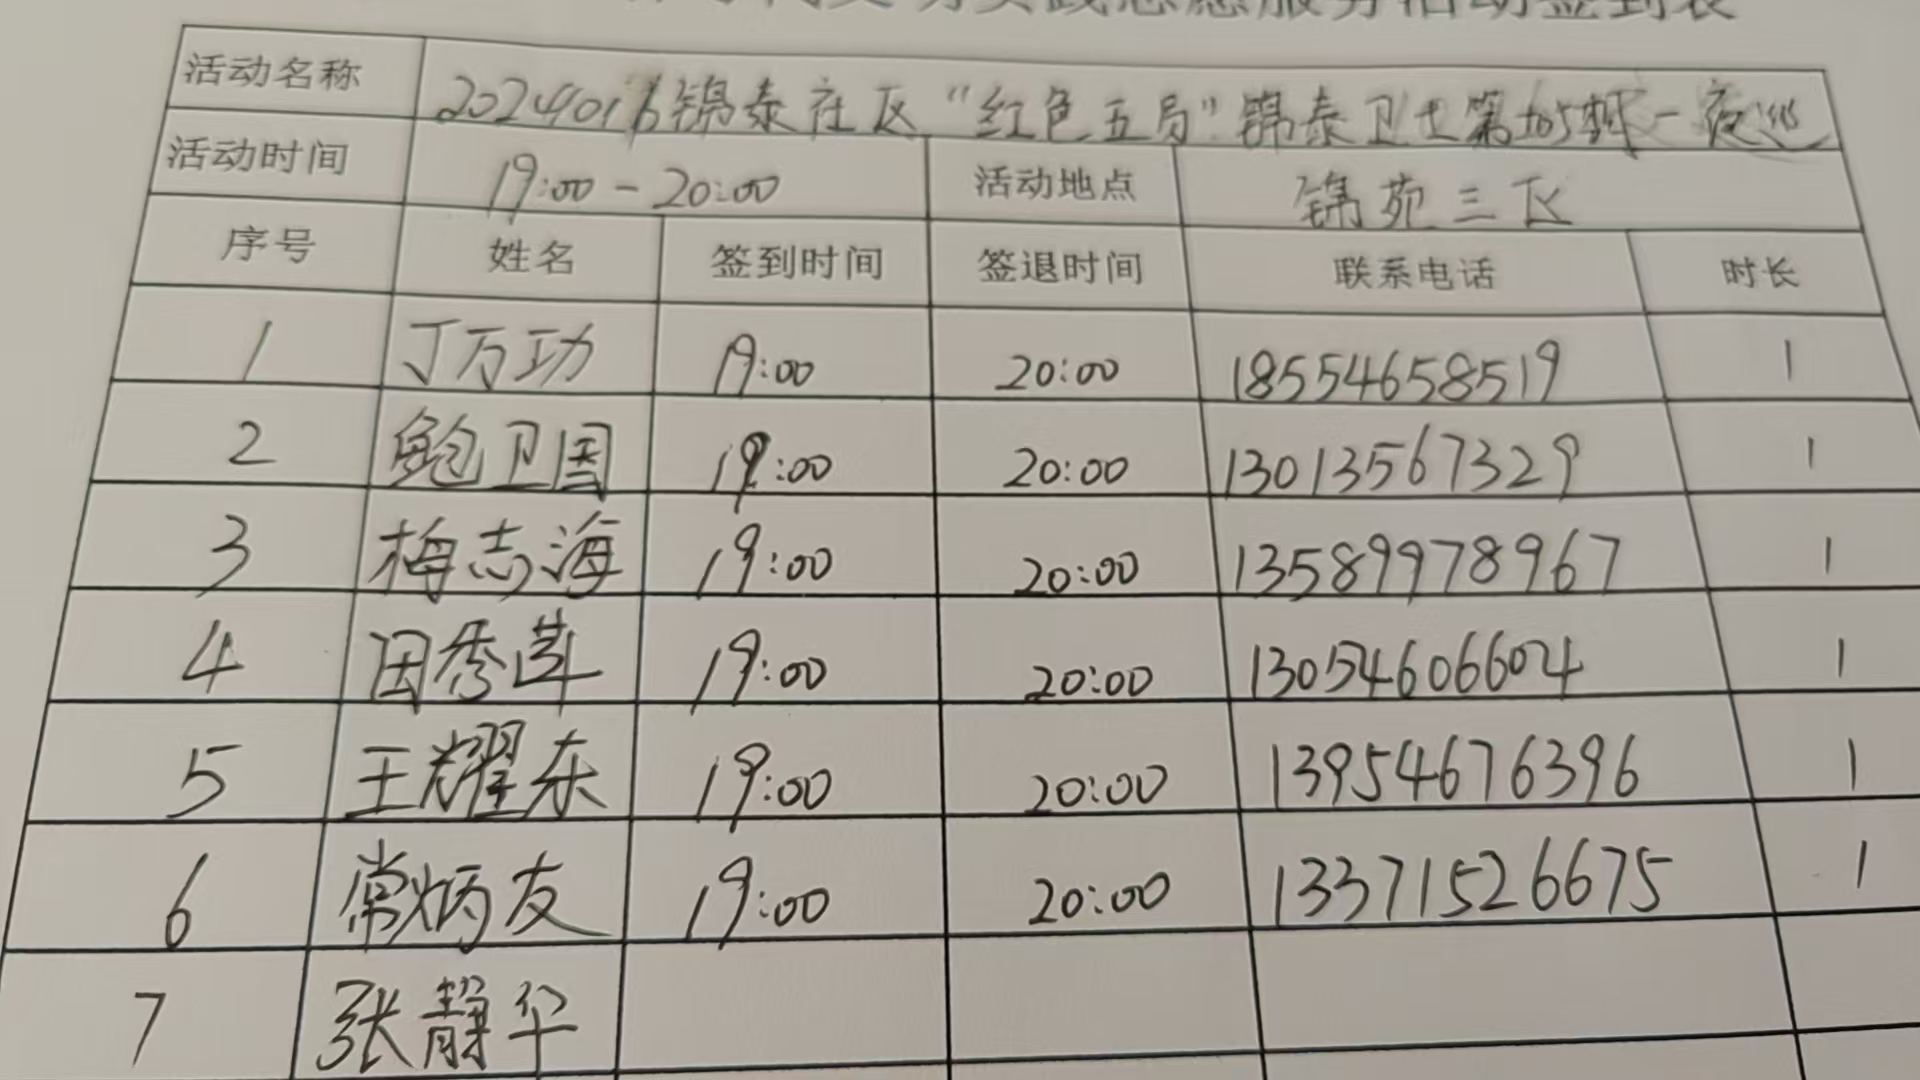 文明实践志愿服务活动签到表
活动名称 20240116锦泰社区“红色五局”锦泰卫士第 一夜巡
活动时间 19:00-20:00 活动地点 锦苑三区
序号 姓名 签到时间 签退时间 联系电话 时长
1 丁万功 19:00 20:00 18554658519 1
2 鲍卫国 19:00 20:00 13013567329 1
3 梅志海 19:00 20:00 13589978967 1
4 田秀莲 19:00 20:00 13054606604 1
5 王耀东 19:00 20:00 13954676396 1
6 常炳友 19:00 20:00 13371526675 1
7 张静华